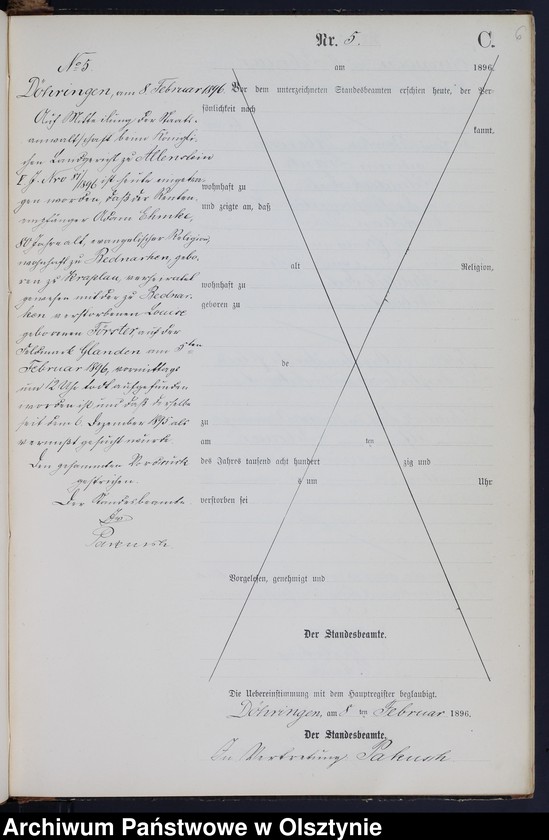 6
Nr. 5.
C.
No 5
Döhringen, am 8. Februar 1896.
Auf Mittheilung der Staats-
anwaltschaft beim Königli-
chen Landgericht zu Allenstein
I J. Nro 81/1896 ist heute eingetra-
gen worden, daß der Renten-
empfänger Adam Ehmke,
80 Jahre alt, evangelischer Religion,
wohnhaft zu Bednarken, gebo-
ren zu Kraplau, verheiratet
gewesen mit der zu Bednar-
ken verstorbenen Louise
geborenen Förster, auf der
Feldmark Glanden am 5ten
Februar 1896, vormittags
um 12 Uhr todt aufgefunden
worden ist und daß derselbe
seit dem 6. Dezember 1895 als
vermißt gesucht wurde.
Den gesammten Vordruck
gestrichen.
Der Standesbeamte.
Pakusch.
am 1896.
Vor dem unterzeichneten Standesbeamten erschien heute, der Per-
sönlichkeit nach
kannt,
wohnhaft zu
und zeigte an, daß
alt Religion,
wohnhaft zu
geboren zu
de
zu
am ten
des Jahres tausend acht hundert zig und
s um Uhr
verstorben sei
Vorgelesen, genehmigt und
Der Standesbeamte.
Die Uebereinstimmung mit dem Hauptregister beglaubigt.
Döhringen, am 8 ten Februar 1896.
Der Standesbeamte.
In Vertretung Pakusch
Archiwum Państwowe w Olsztynie